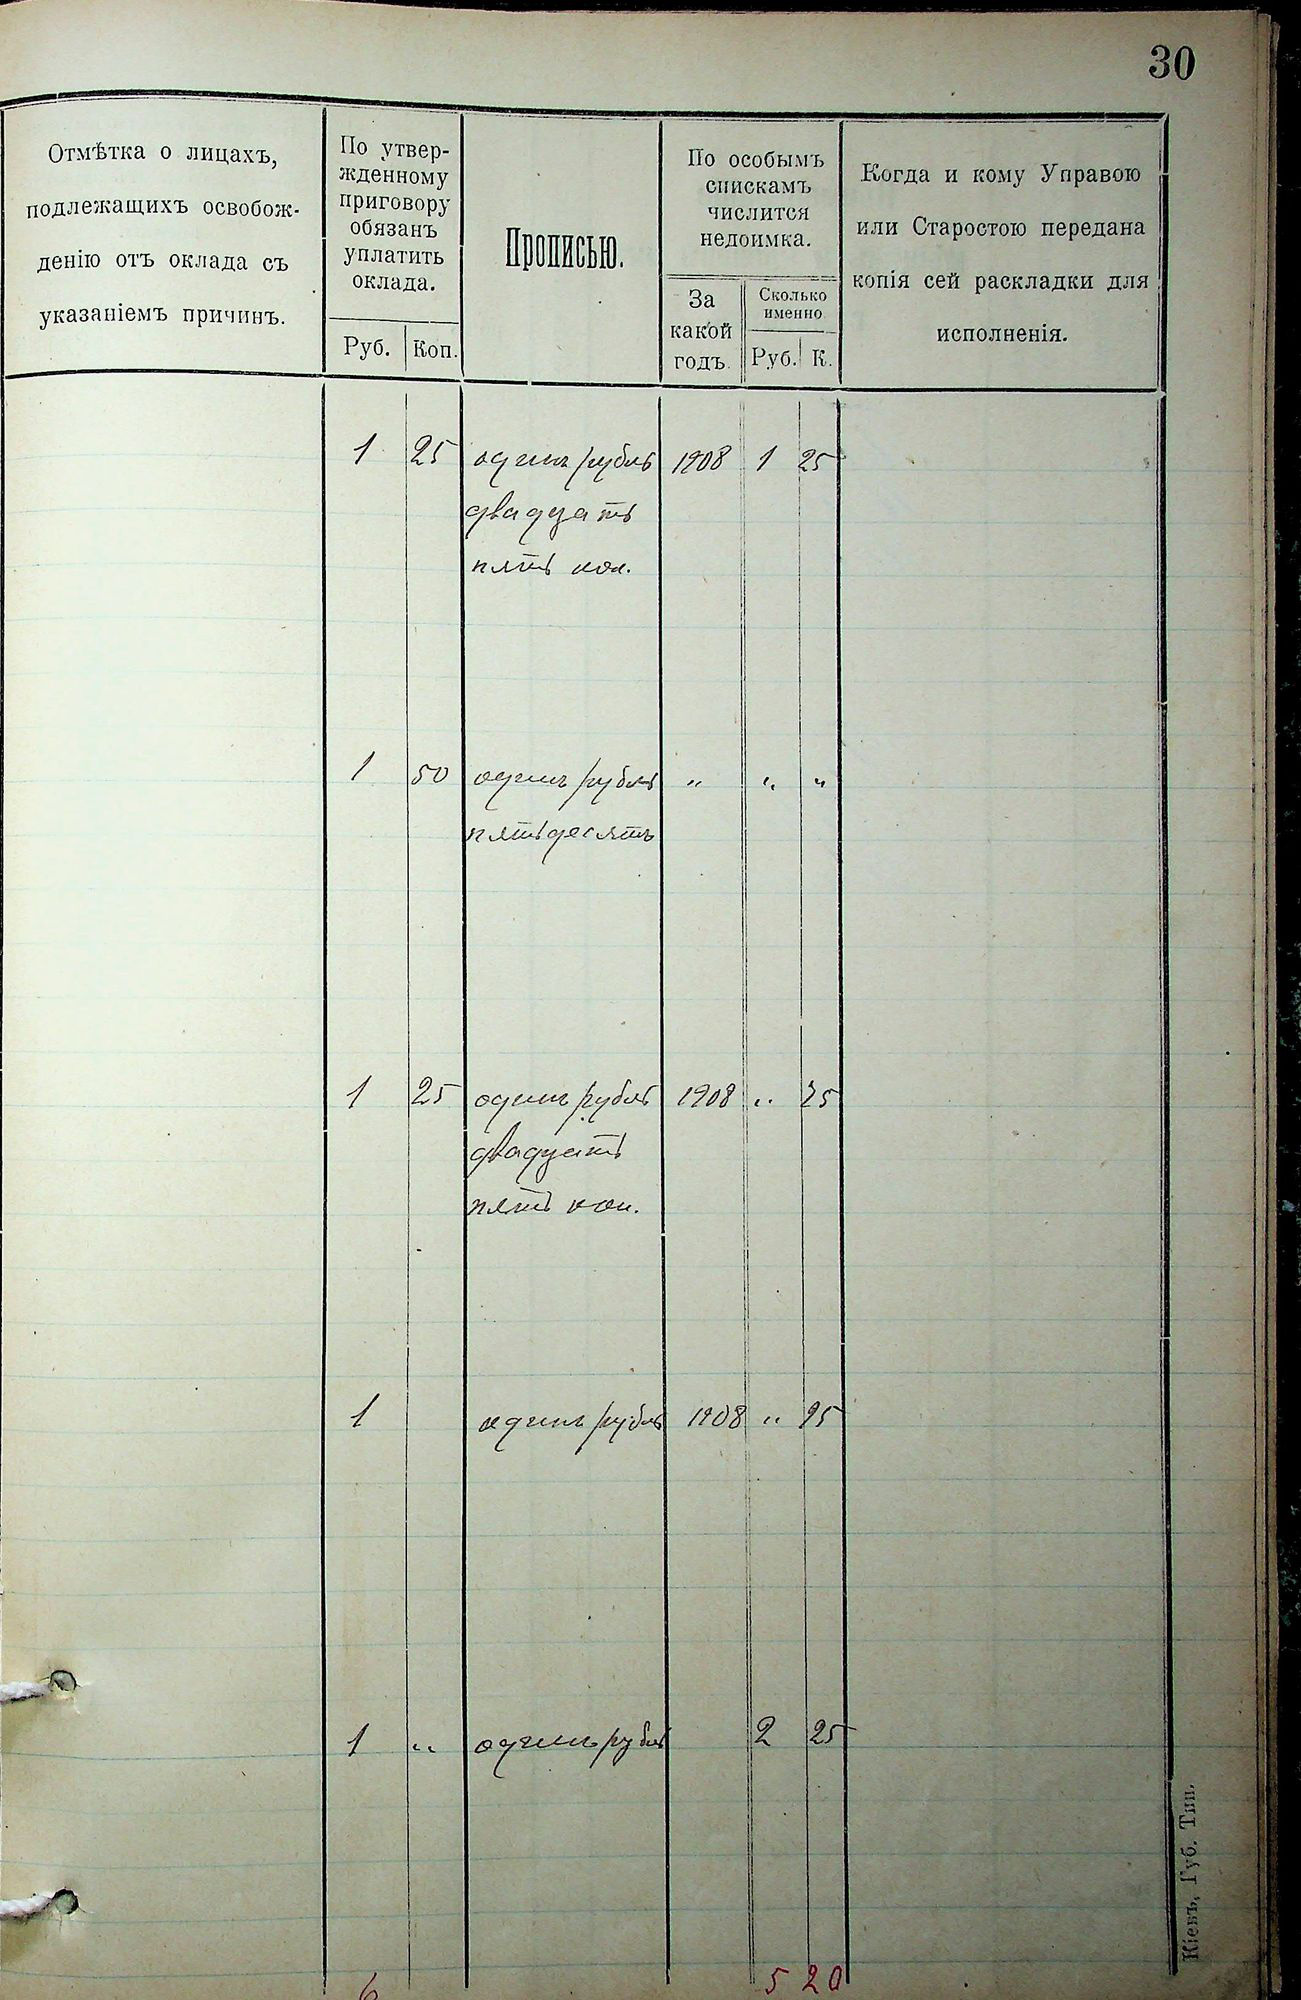 30
Отмѣтка о лицахъ,
подлежащихъ освобож-
денію отъ оклада съ
указаніемъ причинъ.
По утвер-
жденному
приговору
обязанъ
уплатить
оклада.
Руб. Коп.
Прописью.
По особымъ
спискамъ
числится
недоимка.
За
какой
годъ.
Сколько
именно
Руб. К.
Когда и кому Управою
или Старостою передана
копія сей раскладки для
исполненія.
1 25 одинъ рубль 1908 1 25
двадцать
пять коп.
1 50 одинъ рубль " " "
пятьдесятъ
1 25 одинъ рубль 1908 " 25
двадцать
пять коп.
1 одинъ рубль 1908 "
1 " одинъ рубль 2 25
6 5 20
Кіевъ, Губ. Тип.